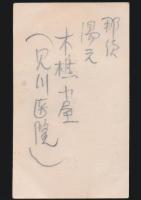 那須
湯元
木樵小屋
(見川医院)